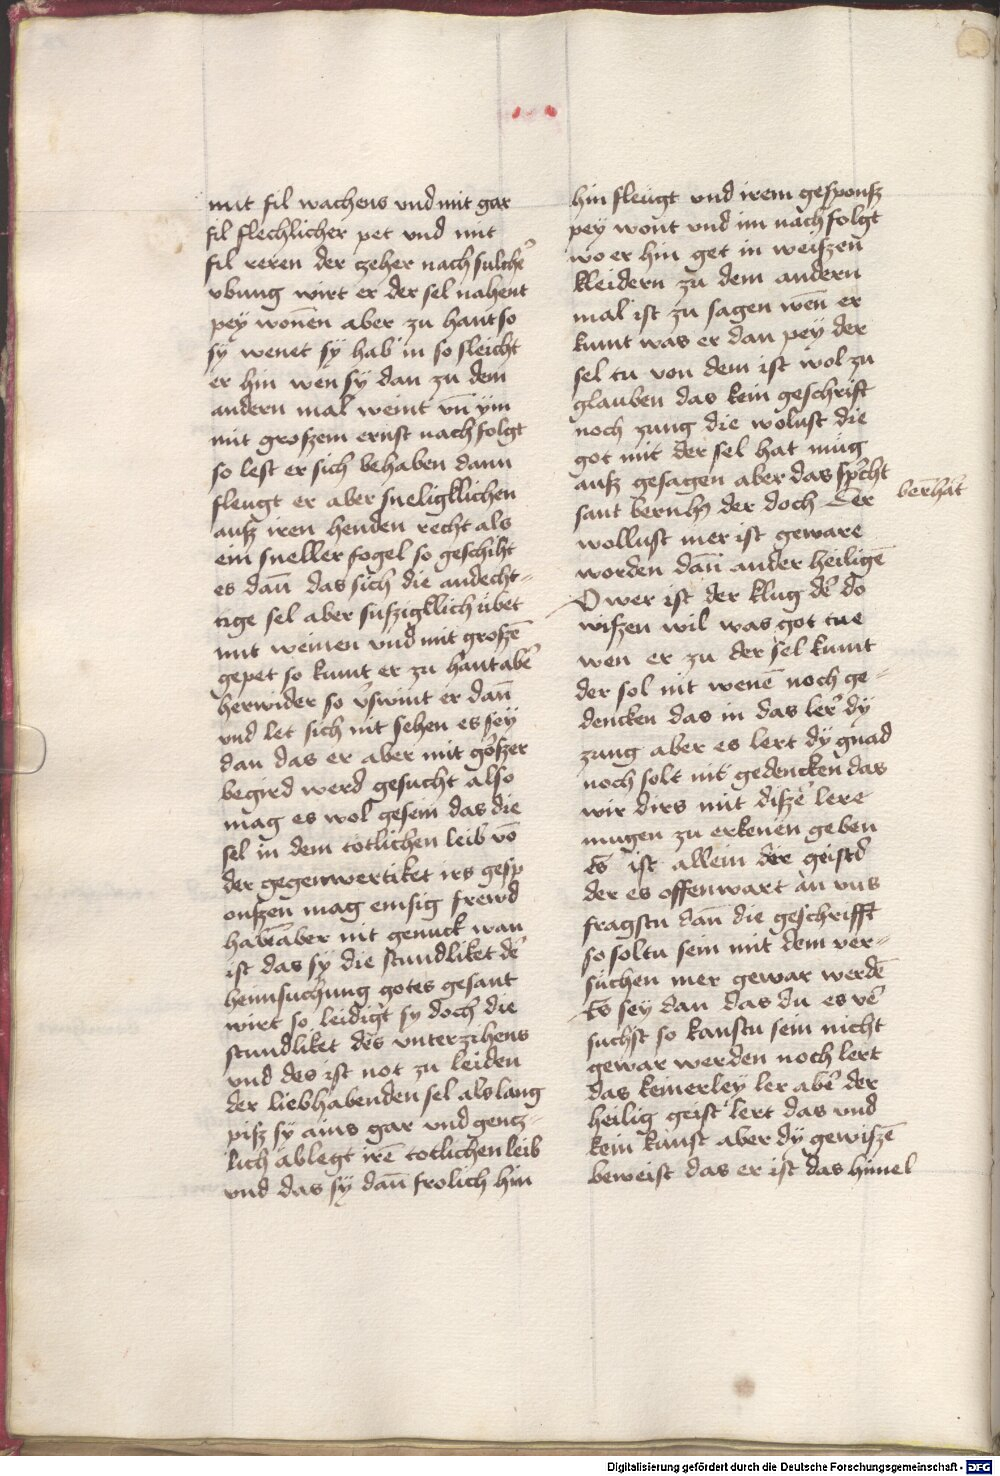 mit fil wachens vnd mit gar
fil flechlicher pet vnd mit
fil reren der czeher nach sulchē
vbung wirt er der sel nahent
pey wonēn aber zu hant so
sy wenet sy hab in so sleicht
er hin wen sy dan zu dem
andern mal weint vn̄ ym
mit groszem ernst nach folgt
so lest er sich behaben dann
fleugt er aber sneligklichen
ausz iren henden recht als
ein sneller fogel so geschiht
es dan̄ das sich die andech-
tige sel aber suszigklich übet
mit weinen vnd mit groszē
gepet so kumt er zu hant abē
herwider so v̄swint er dan̄
vnd let sich nit sehen es sey
dan das er aber mit groszer
begird werd gesucht also
mag es wol gesein das die
sel in dem totlichen leib vō
der gegenwertiket irs gesp
onszen mag emsig frewd
haben aber nit genuck wan
ist das sy die stundliket dē
heimsuchung gotes gesant
wirt so leidigt sy doch die
stundliket des vnterzihens
vnd des ist not zu leiden
der liebhabenden sel als lang
pisz sy ains gar vnd gencz-
lich ablegt irē totlichen leib
vnd das sy dan̄ frolich hin
hin fleugt vnd irem gesponsz
pey wont vnd im nach folgt
wo er hin get in weiszen
kleidern zu dem andern
mal ist zu sagen wen̄ er
kumt was er dan pey der
sel tu von dem ist wol zu
glauben das kein geschrift
noch zung die wolust die
got mit der sel hat müg
ausz gesagen aber das sp̄cht
sant bernh̄ der doch Der
wollust mer ist geware
worden dan̄ ander heiligē
O wer ist der klug dē do
wiszen wil was got tue
wen er zu der sel kumt
der sol nit wenē noch ge-
dencken das in das lerē dy
zung aber es lert dy gnad
noch solt nit gedencken das
wir dirs mit diszē lere
mugen zu erkenen geben
Es ist allein der geist d̄
der es offenwart an vns
fragstu dan̄ die geschrifft
so soltu sein mit dem ver-
suchen mer gewar werdē
Es sey dan das du es vē
suchst so kanstu sein nicht
gewar werden noch lert
das keinerley ler abē der
heilig geist lert das vnd
kein kunst aber dy gewiszē
beweist das er ist das himel